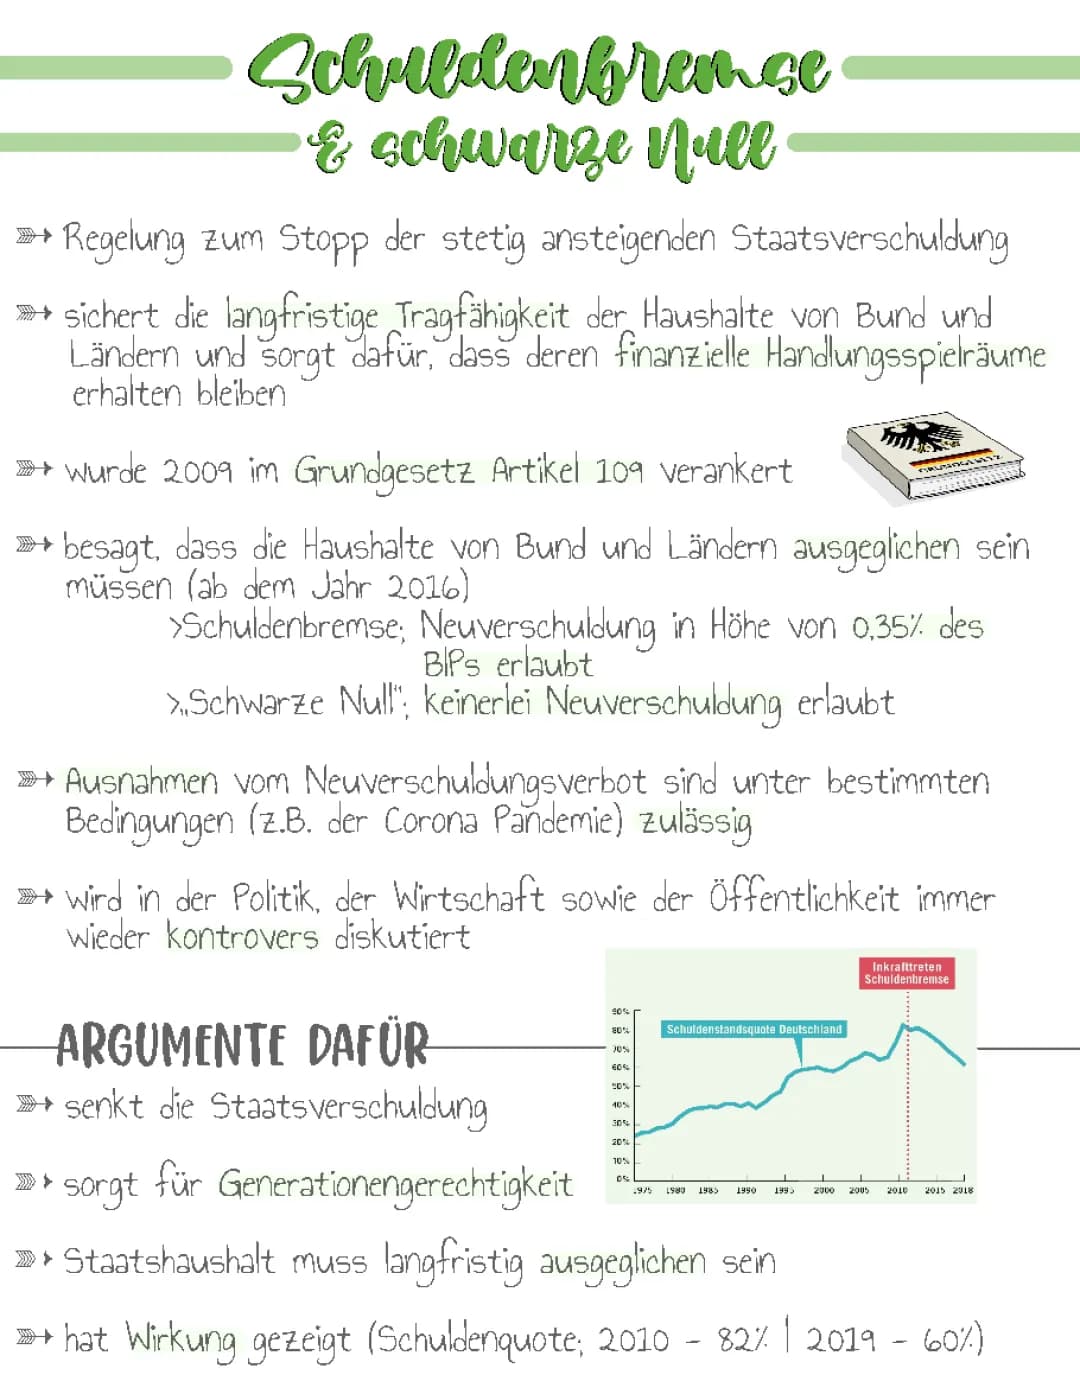 Schuldenbremse
& schwarze Null
Regelung zum Stopp der stetig ansteigenden Staatsverschuldung
sichert die langfristige Tragfähigkeit der Haushalte von Bund und
Ländern und sorgt dafür, dass deren finanzielle Handlungsspielräume
erhalten bleiben
GRUNDGESETZ
wurde 2009 im Grundgesetz Artikel 109 verankert
besagt, dass die Haushalte von Bund und Ländern ausgeglichen sein
müssen (ab dem Jahr 2016)
>Schuldenbremse; Neuverschuldung in Höhe von 0,35% des
BIPs erlaubt
>„Schwarze Null“; keinerlei Neuverschuldung erlaubt
Ausnahmen vom Neuverschuldungsverbot sind unter bestimmten
Bedingungen (z.B. der Corona Pandemie) zulässig
wird in der Politik, der Wirtschaft sowie der Öffentlichkeit immer
wieder kontrovers diskutiert
Inkrafttreten
Schuldenbremse
Schuldenstandsquote Deutschland
90%
80%
70%
60%
50%
40%
30%
20%
10%
0%
1975 1980 1985 1990 1995 2000 2005 2010 2015 2018
ARGUMENTE DAFÜR
senkt die Staatsverschuldung
sorgt für Generationengerechtigkeit
Staatshaushalt muss langfristig ausgeglichen sein
hat Wirkung gezeigt (Schuldenquote; 2010 - 82% | 2019 - 60%)